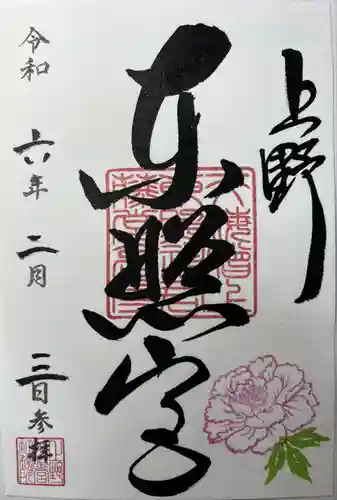 上野
東照宮
令和六年二月三日参拝